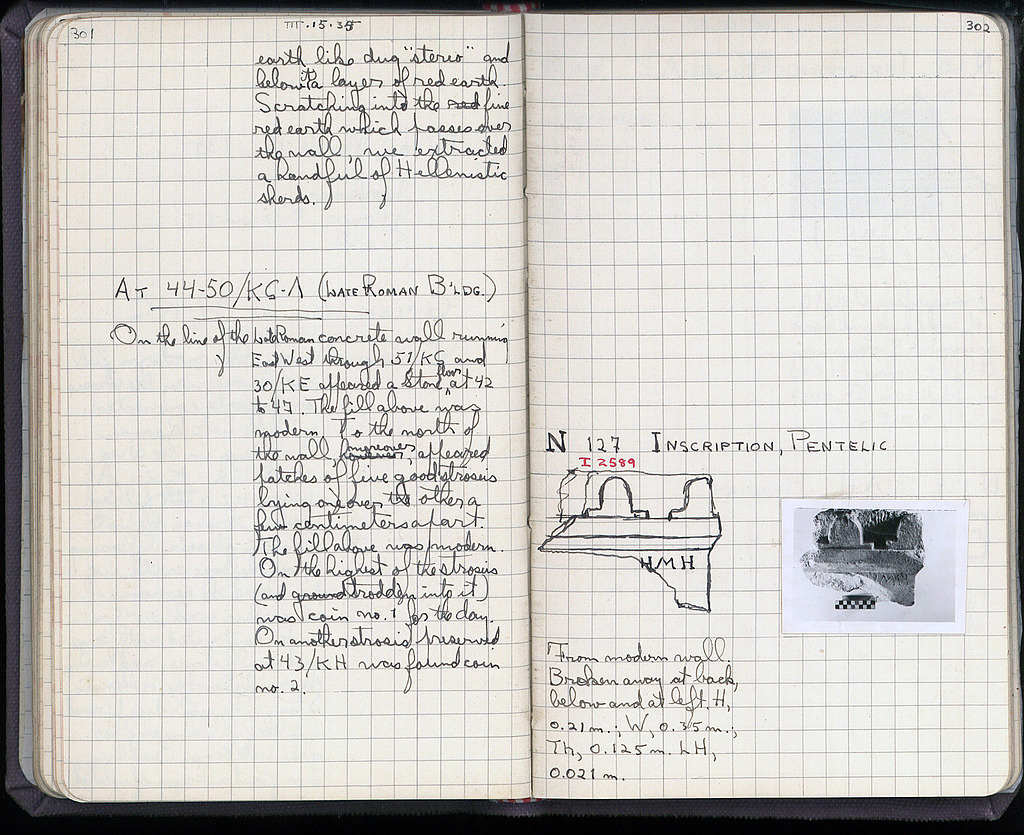 301
III.15.35
earth like dug "stereo" and
below it a layer of red earth.
Scratching into the red fine
red earth which passes over
the wall, we extracted
a handful of Hellenistic
sherds.
AT 44-50/ΚϚ-Λ (LATE ROMAN B'LDG.)
On the line of the Late Roman concrete wall running
East West through 51/ΚϚ and
30/ΚΕ appeared a stone floor at 42
to 47. The fill above was
modern. To the north of
the wall, however, moreover, appeared
patches of five good strosis
lying one over the other a
few centimeters apart.
The fill above was modern.
On the highest of the strosis
(and ground trodden into it)
was coin no. 1 for the day.
On another strosis preserved
at 43/ΚΗ was found coin
no. 2.
302
N 127 INSCRIPTION, PENTELIC
I 2589
ΗΜΗ
From modern wall.
Broken away at back,
below and at left. H,
0.21 m.; W, 0.35 m.;
Th, 0.125 m. LH,
0.021 m.